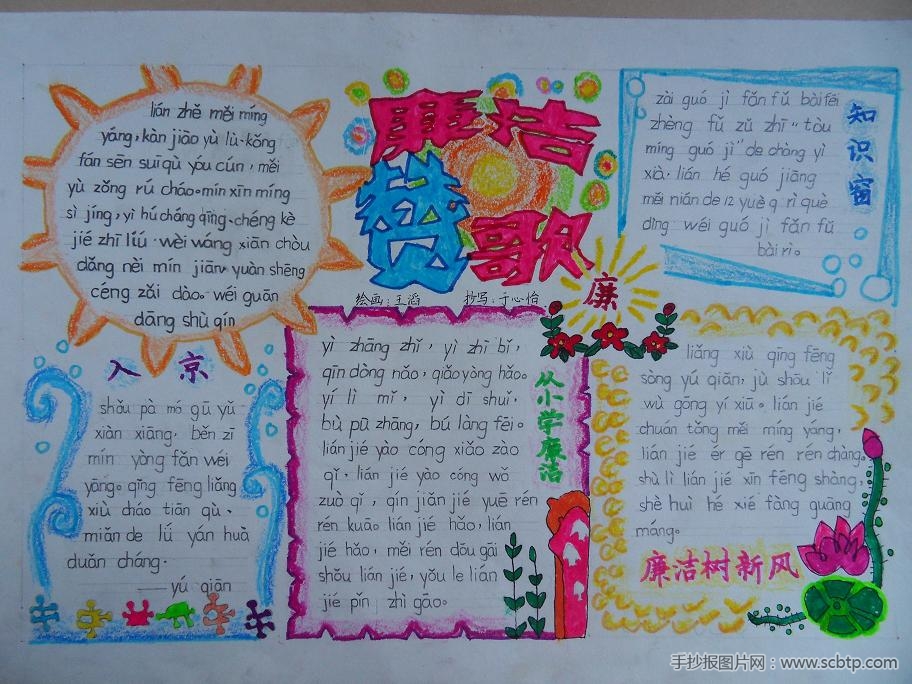 廉洁
赞歌
绘画：王滔 抄写：于心怡
lián zhě měi míng
yáng, kàn jiāo yù lù. kǒng
fán sēn suī qù yóu cún, měi
yù zǒng rú cháo. mín xīn míng
sì jíng, yì hú cháng qīng. chéng kè
jié zhī liú. wèi wáng xiān chòu
dǎng nèi mín jiān yuàn shēng
céng zǎi dào. wéi guān
dāng shù qín
知识窗
zài guó jì fǎn fǔ bài fēi
zhèng fǔ zǔ zhī "tòu
míng guó jì" de chàng yì
xià, lián hé guó jiāng
měi nián de 12 yuè 9 rì què
dìng wéi guó jì fǎn fǔ
bài rì.
入京
shǒu pà mó gū yǔ
xiàn xiāng, běn zī
mín yòng fǎn wéi
yāng. qīng fēng liǎng
xiù cháo tiān qù,
miǎn de lǘ yán huà
duǎn cháng.
——yú qiān
从小学廉洁
yì zhāng zhǐ, yì zhī bǐ,
qín dòng nǎo, qiǎo yòng hǎo.
yí lì mǐ, yì dī shuǐ,
bù pū zhāng, bú làng fēi.
lián jié yào cóng xiǎo zào
qǐ, lián jié yào cóng wǒ
zuò qǐ, qín jiǎn jié yuē rén
rén kuā lián jié hǎo, lián
jié hǎo, měi rén dōu gāi
shǒu lián jié, yǒu le lián
jié pǐn zhì gāo.
廉
liǎng xiù qīng fēng
sòng yú qiān, jù shōu lǐ
wù gōng yí xiū. lián jié
chuán tǒng měi míng yáng,
lián jié ér gē rén rén chàng.
shù lì lián jié xīn fēng shàng,
shè huì hé xié fàng guāng
máng.
廉洁树新风
手抄报图片网：www.scbtp.com